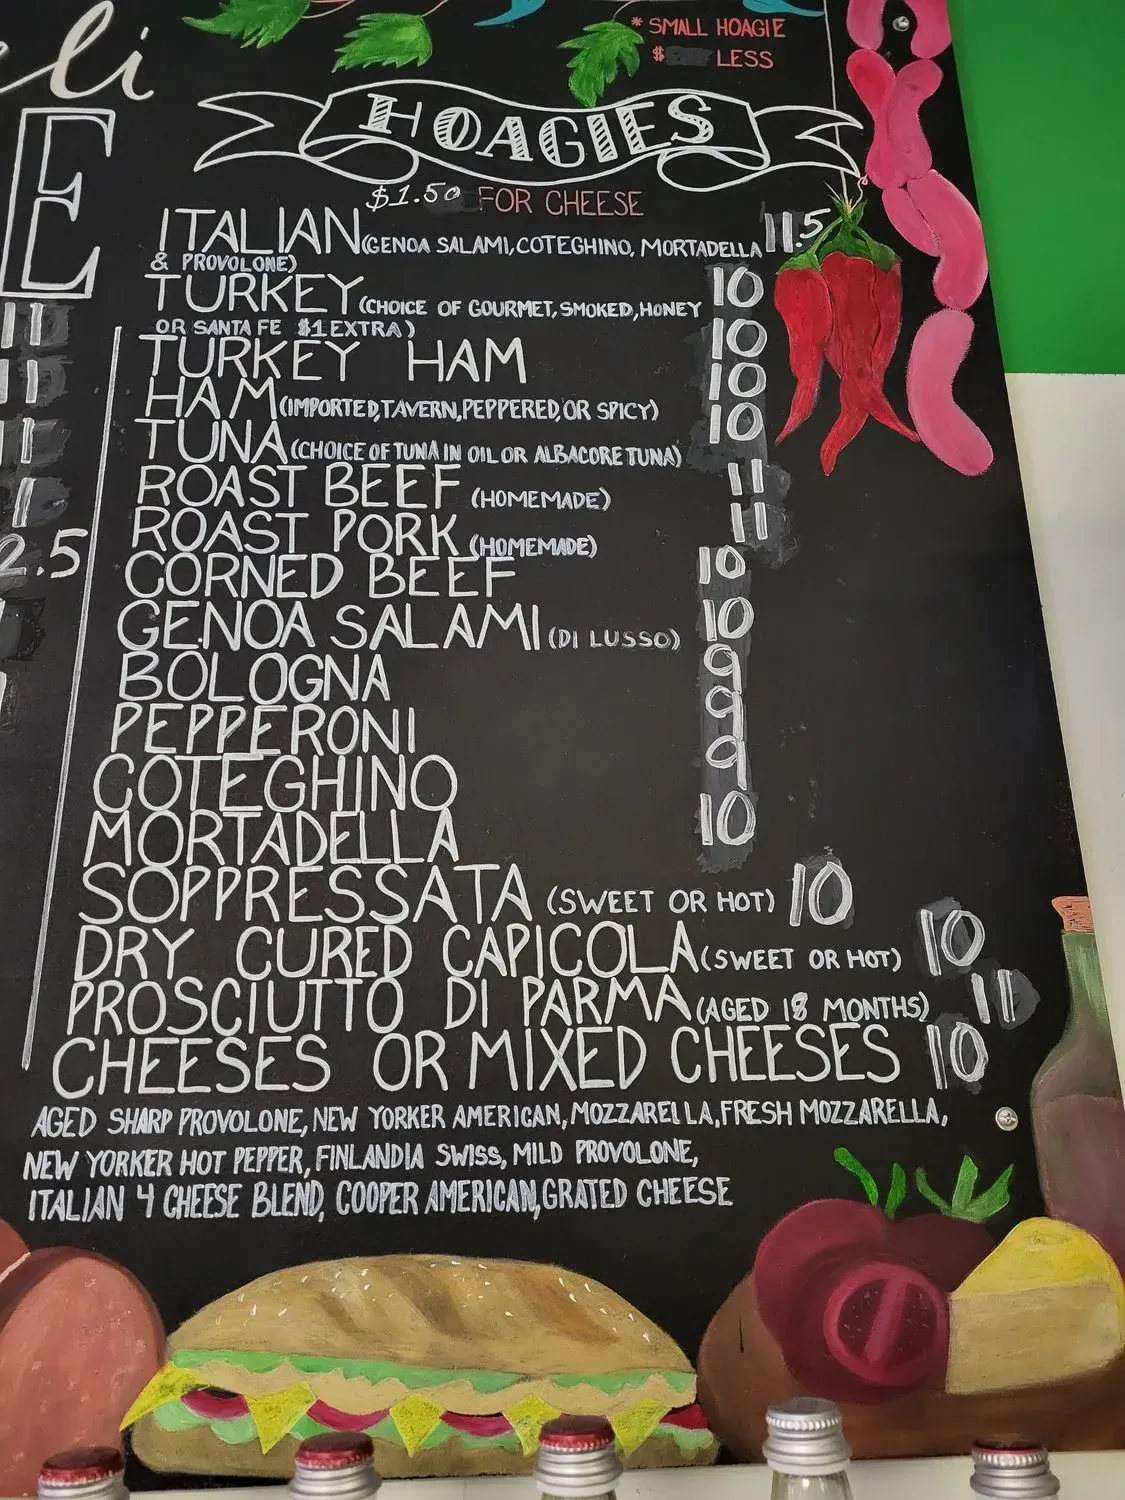 eli
E
* SMALL HOAGIE
$ LESS
HOAGIES
$1.50 FOR CHEESE
ITALIAN (GENOA SALAMI, COTEGHINO, MORTADELLA 11.5
& PROVOLONE)
TURKEY (CHOICE OF GOURMET, SMOKED, HONEY 10
OR SANTA FE $1 EXTRA)
TURKEY HAM 10
HAM (IMPORTED, TAVERN, PEPPERED, OR SPICY) 10
TUNA (CHOICE OF TUNA IN OIL OR ALBACORE TUNA) 10
ROAST BEEF (HOMEMADE) 11
ROAST PORK (HOMEMADE) 11
CORNED BEEF 10
GENOA SALAMI (DI LUSSO) 10
BOLOGNA 9
PEPPERONI 9
COTEGHINO 9
MORTADELLA 10
SOPPRESSATA (SWEET OR HOT) 10
DRY CURED CAPICOLA (SWEET OR HOT) 10
PROSCIUTTO DI PARMA (AGED 18 MONTHS) 11
CHEESES OR MIXED CHEESES 10
AGED SHARP PROVOLONE, NEW YORKER AMERICAN, MOZZARELLA, FRESH MOZZARELLA,
NEW YORKER HOT PEPPER, FINLANDIA SWISS, MILD PROVOLONE,
ITALIAN 4 CHEESE BLEND, COOPER AMERICAN, GRATED CHEESE
11
11
11
2.5